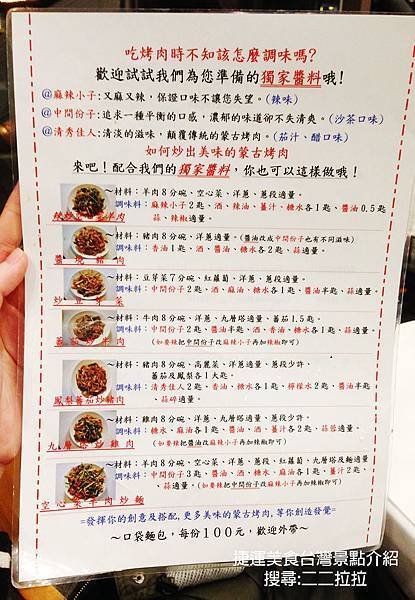 吃烤肉時不知該怎麼調味嗎?
歡迎試試我們為您準備的獨家醬料哦!
@麻辣小子:又麻又辣，保證口味不讓您失望。(辣味)
@中間份子:追求一種平衡的口感，濃郁的味道卻不失清爽。(沙茶口味)
@清秀佳人:清淡的滋味，顛覆傳統的蒙古烤肉。(茄汁、醋口味)
如何炒出美味的蒙古烤肉
來吧!配合我們的獨家醬料，你也可以這樣做哦!
～材料:羊肉8分碗、空心菜、洋蔥、蔥段適量。
調味料:麻辣小子2匙、酒、辣油、薑汁、糖水各1匙、醬油0.5匙
蒜、辣椒適量。
～材料:豬肉8分碗、洋蔥適量。(醬油改成中間份子也有不同滋味)
調味料:香油1匙、酒、醬油、糖水各2匙、蒜適量。
醬燒豬肉
～材料:豆芽菜7分碗、紅蘿蔔、洋蔥、蔥段適量。
調味料:中間份子2匙、酒、麻油、糖水各1匙、醬油半匙、蒜適量。
炒豆芽菜
～材料:牛肉8分碗、洋蔥、九層塔適量、蕃茄1.5匙。
調味料:中間份子2匙、醬油半匙、酒、香油、糖水各1匙、蒜適量。
(如要辣把中間份子改麻辣小子再加辣椒即可)
蕃茄炒牛肉
～材料:豬肉8分碗、高麗菜、洋蔥、蔥段少許、
蕃茄及鳳梨各1大匙。
調味料:清秀佳人2匙、香油、糖水各1匙、檸檬水2匙、醬油半匙、
蒜碎適量。
鳳梨蕃茄炒豬肉
～材料:雞肉8分碗、洋蔥、九層塔適量、蔥段少許。
調味料:糖水、麻油各1匙、醬油、酒、薑汁各2匙、蒜蓉適量。
(如要辣把醬油改麻辣小子再加辣椒即可)
九層塔炒雞肉
～材料:羊肉8分碗、空心菜、洋蔥、蔥段、紅蘿蔔、九層塔及麵適量。
調味料:中間份子3匙、醬油、酒、糖水、麻油各1匙、薑汁2匙、
蒜適量。(如要辣把中間份子改麻辣小子再加辣椒即可)
空心菜羊肉炒麵
=發揮你的創意及搭配,更多美味的蒙古烤肉,等你創造發覺=
～口袋麵包，每份100元，歡迎外帶～
捷運美食台灣景點介紹
搜尋:二二拉拉